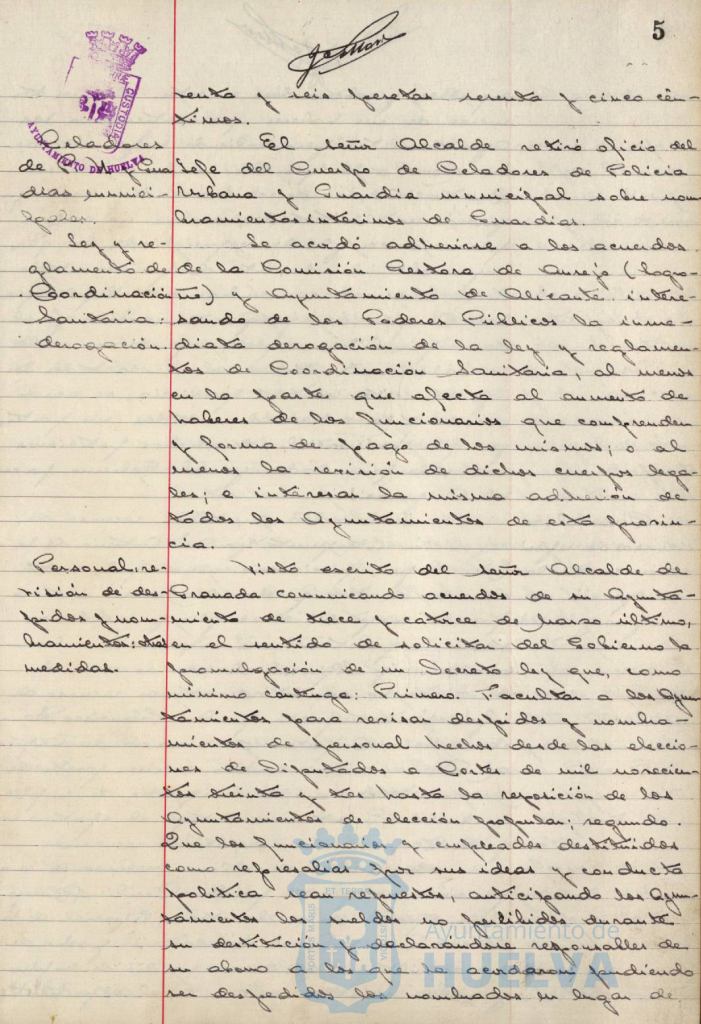 5
renta y seis pesetas sesenta y cinco cén-
timos.
CUSTODIA
AYUNTAMIENTO DE HUELVA
Celadores
de P. U. y Guar
dias munici-
pales.
El señor Alcalde retiró oficio del
Jefe del Cuerpo de Celadores de Policía
Urbana y Guardia municipal sobre nom
bramientos interinos de Guardias.
Ley y re-
glamento de
Coordinación
Sanitaria:
derogación.
Se acordó adherirse a los acuerdos
de la Comisión Gestora de Ausejo (Logro-
ño) y Ayuntamiento de Alicante intere-
sando de los Poderes Públicos la inme-
diata derogación de la ley y reglamen-
tos de Coordinación Sanitaria, al menos
en la parte que afecta al aumento de
haberes de los funcionarios que comprenden
y forma de pago de los mismos; o al
menos la revisión de dichos cuerpos lega-
les; e interesar la misma adhesión de
todos los Ayuntamientos de esta provin-
cia.
Personal: re-
visión de des-
pidos y nom-
bramientos; otras
medidas.
Visto escrito del señor Alcalde de
Granada comunicando acuerdos de su Ayunta-
miento de trece y catorce de marzo último,
en el sentido de solicitar del Gobierno la
promulgación de un Decreto ley que, como
mínimo contenga: Primero. Facultar a los Ayun
tamientos para revisar despidos y nombra-
mientos de personal hechos desde las eleccio-
nes de Diputados a Cortes de mil novecien-
tos treinta y tres hasta la reposición de los
Ayuntamientos de elección popular; segundo.
Que los funcionarios y empleados destituidos
como represalias por sus ideas y conducta
política sean repuestos, anticipando los Ayun-
tamientos los sueldos no percibidos durante
su destitución y declarándose responsables de
su abono a los que la acordaron pudiendo
ser despedidos los nombrados en lugar de
Ayuntamiento de
HUELVA